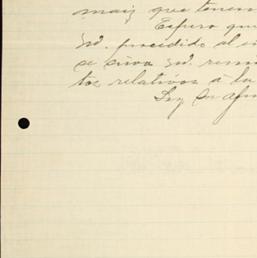 maiz que tenem
Espero qu
Ud. procedido al e
se sirva Ud. remi
tos relativos á la
Soy Su Afm